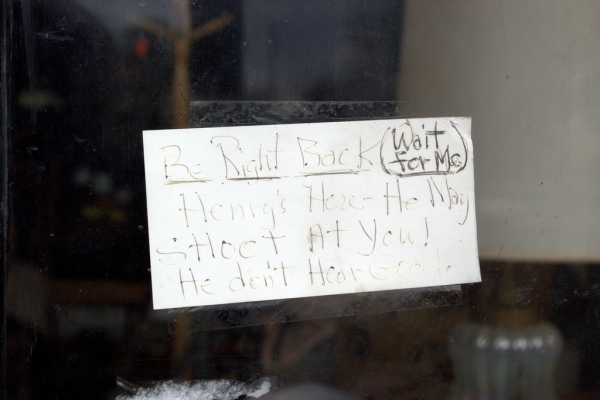 Be Right Back (Wait for Me)
Henry's Here - He May
SHoot At You!
He don't Hear Good.